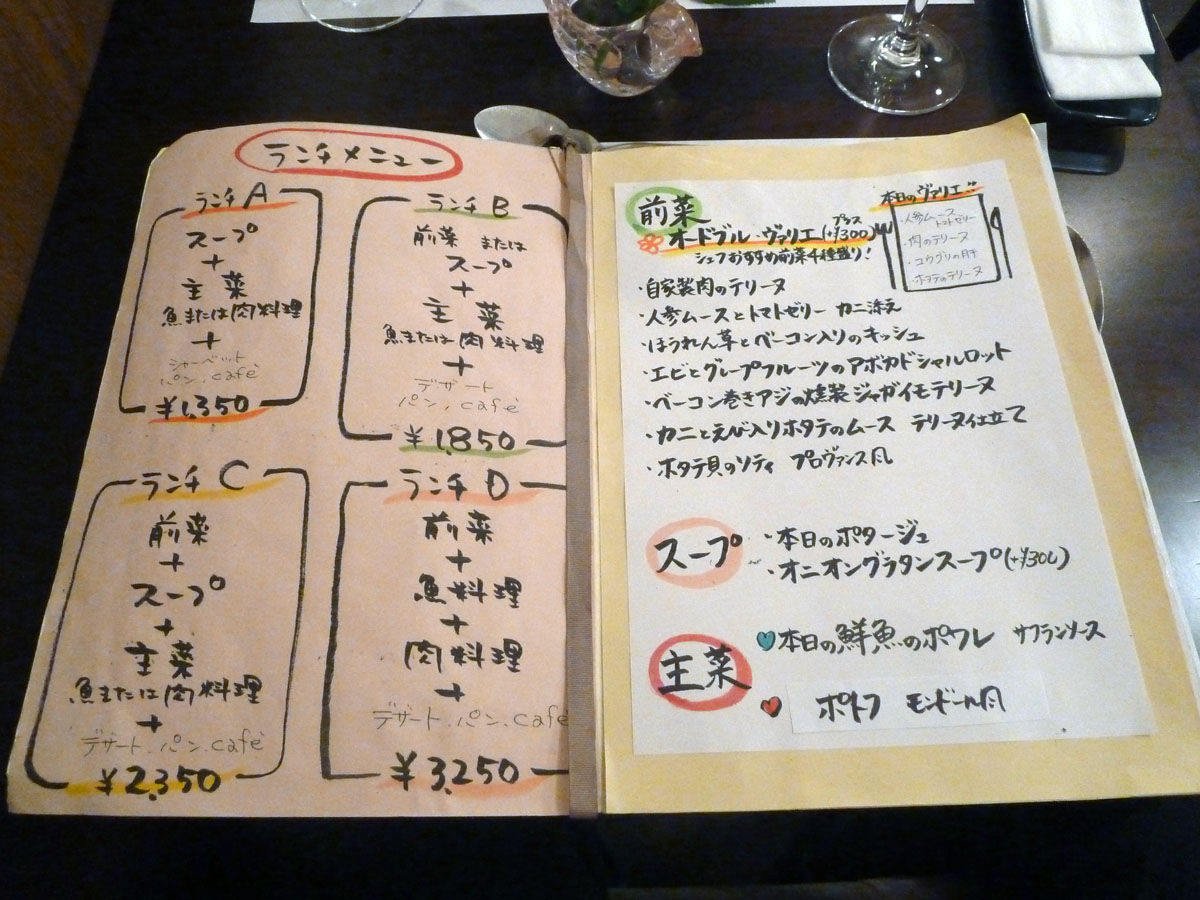 ランチメニュー
ランチA
スープ
+
主菜
魚または肉料理
+
シャーベット
パン、café
¥1,350
ランチB
前菜 または
スープ
+
主菜
魚または肉料理
+
デザート
パン、café
¥1,850
ランチC
前菜
+
スープ
+
主菜
魚または肉料理
+
デザート、パン、café
¥2,350
ランチD
前菜
+
魚料理
+
肉料理
+
デザート、パン、café
¥3,250
前菜
オードブル・ヴァリエ(+¥300)
プラス
シェフおすすめ前菜4種盛り!
本日のヴァリエ!!
・人参ムース
トマトゼリー
・肉のテリーヌ
・コウグリの肝
・ホタテのテリーヌ
・自家製肉のテリーヌ
・人参ムースとトマトゼリー カニ添え
・ほうれん草とベーコン入りのキッシュ
・エビとグレープフルーツのアボカドシャルロット
・ベーコン巻きアジの燻製ジャガイモテリーヌ
・カニとえび入りホタテのムース テリーヌ仕立て
・ホタテ貝のソティ プロヴァンス風
スープ
・本日のポタージュ
・オニオングラタンスープ(+¥300)
主菜
本日の鮮魚のポワレ サフランソース
ポトフ モンドール風